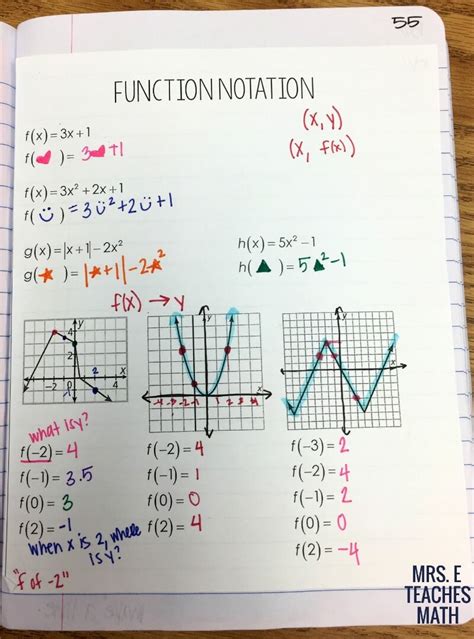 55
FUNCTION NOTATION
f(x) = 3x + 1
f(♥) = 3♥+1
(x, y)
(x, f(x))
f(x) = 3x² + 2x + 1
f(ü) = 3ü²+2ü+1
g(x) = |x + 1| − 2x²
g(★) = |★+1|−2★²
h(x) = 5x² − 1
h(▲) = 5▲²−1
f(x) → y
y
4
2
-2
0
2
4
x
-1
y
x
-4 -3 -2 -1 1 2 3 4
y
x
what is y?
f(−2) = 4
f(−1) = 3.5
f(0) = 3
f(2) = -1
when x is 2, where
is y?
"f of -2"
f(−2) = 4
f(−1) = 1
f(0) = 0
f(2) = 4
f(−3) = 2
f(−2) = 4
f(−1) = 2
f(0) = 0
f(2) = -4
MRS. E
TEACHES
MATH